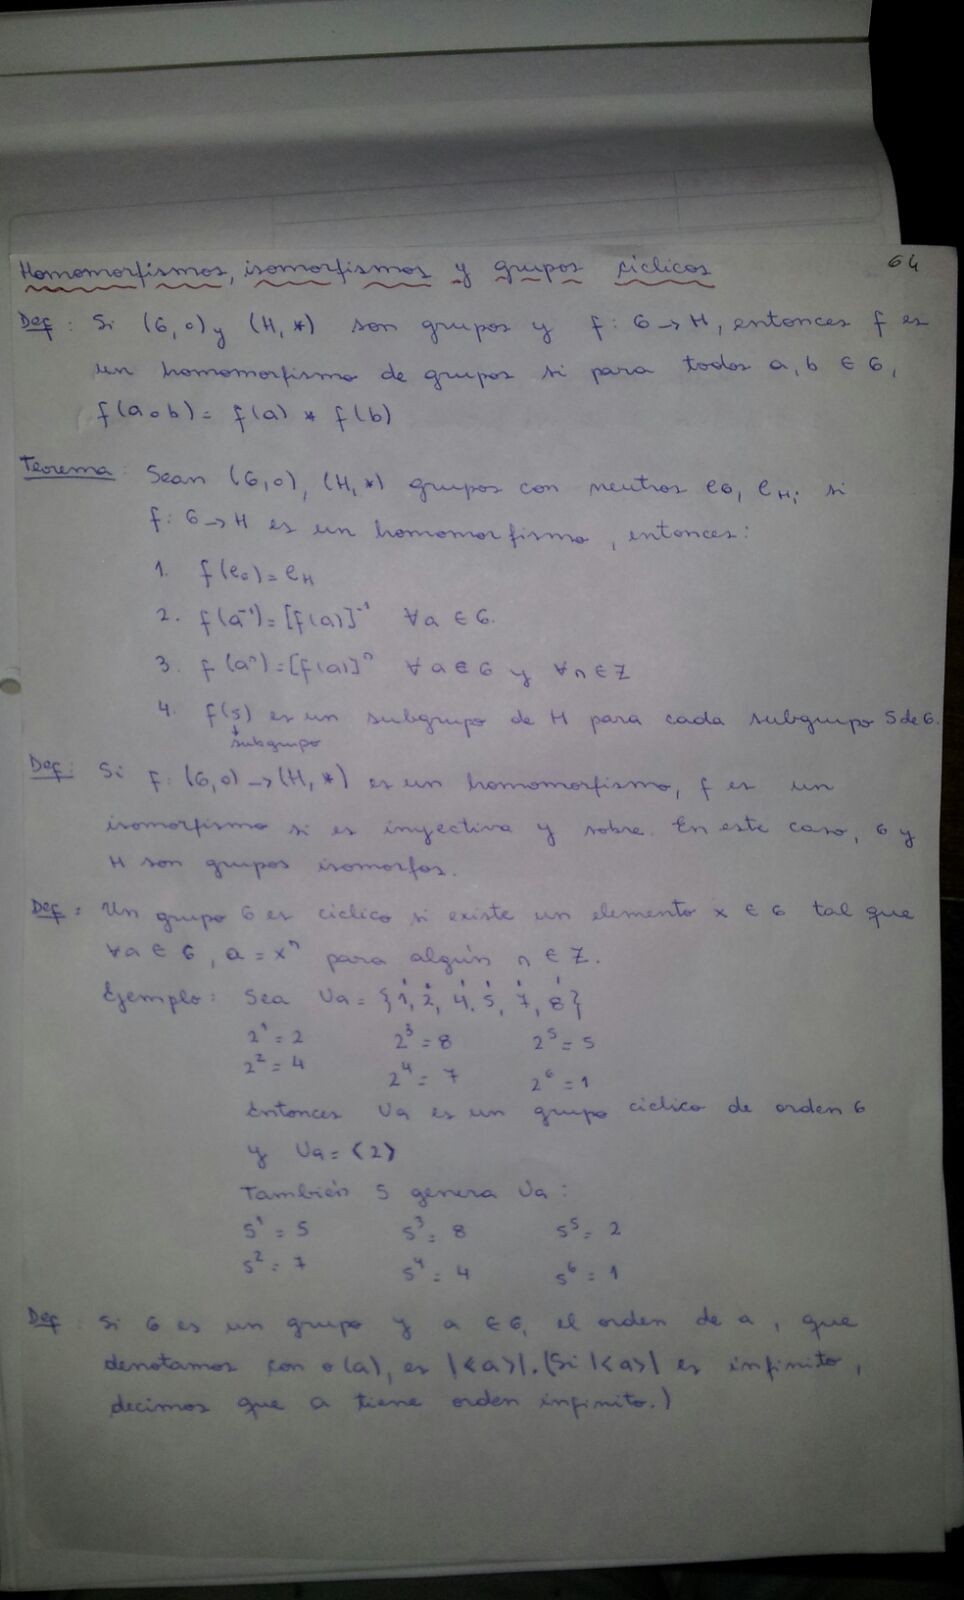 Homomorfismos, isomorfismos y grupos cíclicos
64
Def: Si (G,∘) y (H,*) son grupos y f: G→H, entonces f es
un homomorfismo de grupos si para todos a,b ∈ G,
f(a∘b) = f(a) * f(b)
Teorema: Sean (G,∘), (H,*) grupos con neutros eG, eH; si
f: G→H es un homomorfismo, entonces:
1. f(eG) = eH
2. f(a⁻¹) = [f(a)]⁻¹ ∀a ∈ G.
3. f(aⁿ) = [f(a)]ⁿ ∀a ∈ G y ∀n ∈ Z
4. f(S) es un subgrupo de H para cada subgrupo S de G.
subgrupo
Def: Si f: (G,∘)→(H,*) es un homomorfismo, f es un
isomorfismo si es inyectiva y sobre. En este caso, G y
H son grupos isomorfos.
Def: Un grupo G es cíclico si existe un elemento x ∈ G tal que
∀a ∈ G, a = xⁿ para algún n ∈ Z.
Ejemplo: Sea U9 = {1, 2, 4, 5, 7, 8}
2¹ = 2 2³ = 8 2⁵ = 5
2² = 4 2⁴ = 7 2⁶ = 1
Entonces U9 es un grupo cíclico de orden 6
y U9 = ⟨2⟩
También 5 genera U9:
5¹ = 5 5³ = 8 5⁵ = 2
5² = 7 5⁴ = 4 5⁶ = 1
Def: Si G es un grupo y a ∈ G, el orden de a, que
denotamos con o(a), es |<a>|. (Si |<a>| es infinito,
decimos que a tiene orden infinito.)